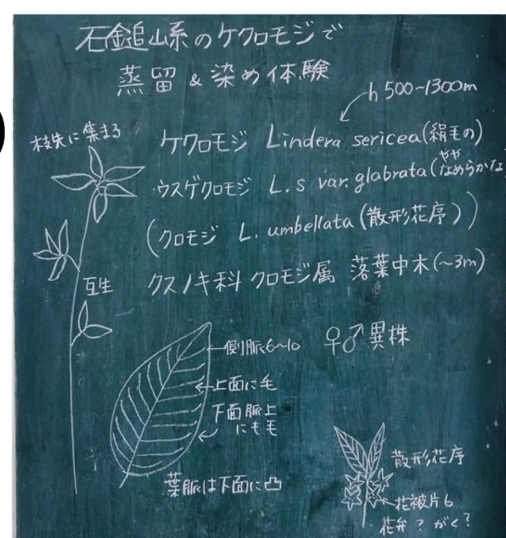 石鎚山系のケクロモジで
蒸留&染め体験
h 500~1300m
枝先に集まる
ケクロモジ Lindera sericea(絹毛の)
ウスゲクロモジ L.s var.glabrata(ややなめらかな)
(クロモジ L. umbellata(散形花序))
互生
クスノキ科 クロモジ属 落葉中木(~3m)
側脈6~10
♀♂異株
上面に毛
下面脈上
にも毛
葉脈は下面に凸
散形花序
花被片6
花弁?がく?